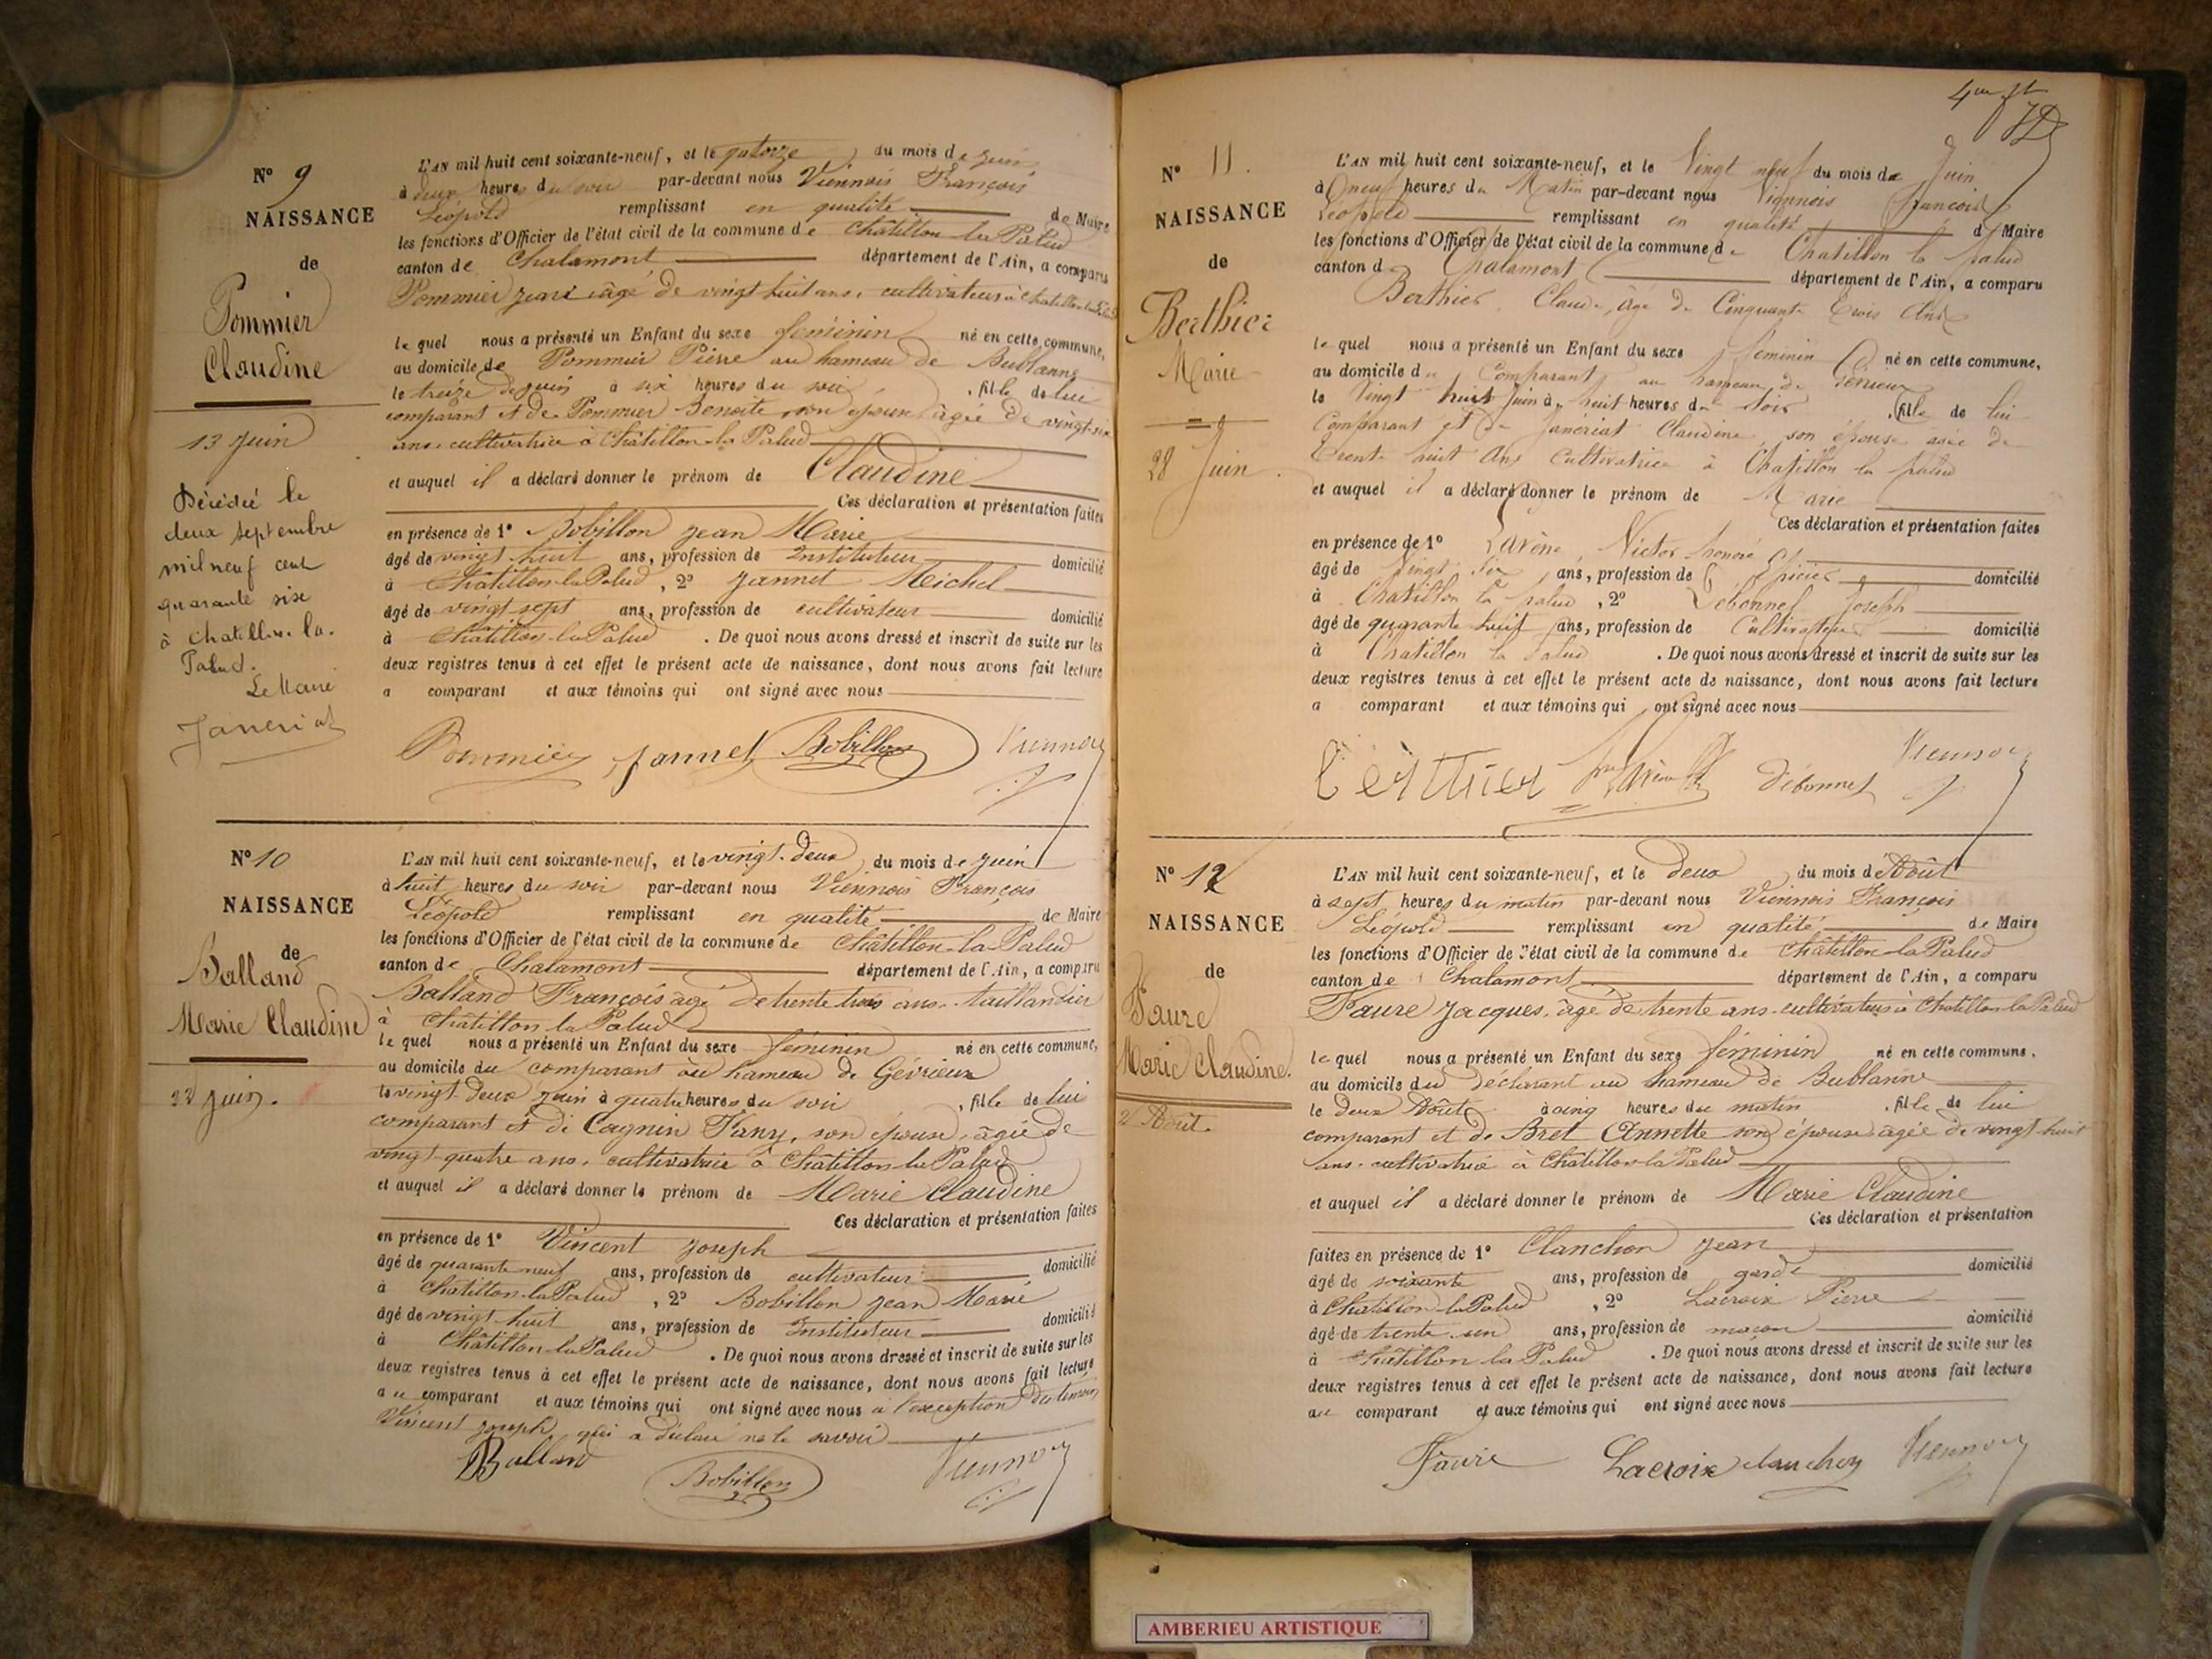 N° 9
NAISSANCE
de
Pommier
Claudine
13 Juin
Décédée le
deux septembre
mil neuf cent
quarante six
à Chatillon-la-
Palud.
Le Maire
Janeriat
L'AN mil huit cent soixante-neuf, et le quatorze du mois de Juin
à deux heures du soir par-devant nous Viennois François
Léopold remplissant en qualité de Maire
les fonctions d'Officier de l'état civil de la commune de Châtillon-la-Palud
canton de Chalamont département de l'Ain, a comparu
Pommier Jean âgé de vingt huit ans, cultivateur à Chatillon-la-Palud
lequel nous a présenté un Enfant du sexe féminin né en cette commune,
au domicile de Pommier Pierre au hameau de Bublanne
le treize de juin à six heures du soir, fille de lui
comparant et de Pommier Benoite, son épouse âgée de vingt-six
ans, cultivatrice à Châtillon-la-Palud
et auquel il a déclaré donner le prénom de Claudine
Ces déclaration et présentation faites
en présence de 1° Bobillon Jean Marie
âgé de vingt huit ans, profession de Instituteur domicilié
à Châtillon-la-Palud, 2° Jannet Michel
âgé de vingt sept ans, profession de cultivateur domicilié
à Châtillon-la-Palud. De quoi nous avons dressé et inscrit de suite sur les
deux registres tenus à cet effet le présent acte de naissance, dont nous avons fait lecture
a comparant et aux témoins qui ont signé avec nous
Pommier Jannet Bobillon Viennois
N° 10
NAISSANCE
de
Balland
Marie Claudine
22 juin.
L'AN mil huit cent soixante-neuf, et le vingt-deux du mois de Juin
à huit heures du soir par-devant nous Viennois François
Léopold remplissant en qualité de Maire
les fonctions d'Officier de l'état civil de la commune de Châtillon-la-Palud
canton de Chalamont département de l'Ain, a comparu
Balland François âgé de trente trois ans, taillandier
à Châtillon la Palud
lequel nous a présenté un Enfant du sexe féminin né en cette commune,
au domicile du comparant au hameau de Gévrieux
le vingt-deux juin à quatre heures du soir, fille de lui
comparant et de Cagnin Fany, son épouse, âgée de
vingt-quatre ans, cultivatrice à Châtillon-la-Palud
et auquel il a déclaré donner le prénom de Marie Claudine
Ces déclaration et présentation faites
en présence de 1° Vincent Joseph
âgé de quarante neuf ans, profession de cultivateur domicilié
à Châtillon-la-Palud, 2° Bobillon Jean Marie
âgé de vingt huit ans, profession de Instituteur domicilié
à Châtillon-la-Palud. De quoi nous avons dressé et inscrit de suite sur les
deux registres tenus à cet effet le présent acte de naissance, dont nous avons fait lecture
au comparant et aux témoins qui ont signé avec nous à l'exception du témoin
Vincent Joseph qui a déclaré ne le savoir
Balland Bobillon Viennois
N° 11.
NAISSANCE
de
Berthier
Marie
28 Juin
L'AN mil huit cent soixante-neuf, et le Vingt neuf du mois de Juin
à neuf heures du Matin par-devant nous Viennois François
Léopold remplissant en qualité de Maire
les fonctions d'Officier de l'état civil de la commune de Chatillon la palud
canton de Chalamont département de l'Ain, a comparu
Berthier Claude, âgé de Cinquante trois Ans
lequel nous a présenté un Enfant du sexe feminin né en cette commune,
au domicile du Comparant au hameau de Gévrieux
le Vingt huit Juin à huit heures du Soir, fille de lui
Comparant et de Janeriat Claudine, son épouse agée de
trente huit Ans Cultivatrice à Chatillon la palud
et auquel il a déclaré donner le prénom de Marie
Ces déclaration et présentation faites
en présence de 1° Victor honoré
âgé de Vingt six ans, profession de Epicier domicilié
à Chatillon la palud, 2° Debonnet Joseph
âgé de quarante huit ans, profession de Cultivateur domicilié
à Chatillon la Palud. De quoi nous avons dressé et inscrit de suite sur les
deux registres tenus à cet effet le présent acte de naissance, dont nous avons fait lecture
a comparant et aux témoins qui ont signé avec nous
berthier Débonnet Viennois
N° 12
NAISSANCE
de
Faure
Marie Claudine.
2 Août.
L'AN mil huit cent soixante-neuf, et le deux du mois d'Août
à sept heures du matin par-devant nous Viennois François
Léopold remplissant en qualité de Maire
les fonctions d'Officier de l'état civil de la commune de Châtillon-la-Palud
canton de Chalamont département de l'Ain, a comparu
Faure Jacques, âgé de trente ans cultivateur à Chatillon-la-Palud
lequel nous a présenté un Enfant du sexe féminin né en cette commune.
au domicile du déclarant au hameau de Bublanne
le deux Août à cinq heures du matin, fille de lui
comparant et de Bret Annette son épouse âgée de vingt-huit
ans, cultivatrice à Châtillon-la-Palud
et auquel il a déclaré donner le prénom de Marie Claudine
Ces déclaration et présentation
faites en présence de 1° Clanchon Jean
âgé de soixante ans, profession de garde domicilié
à Chatillon-la-Palud, 2° Lacroix Pierre
âgé de trente-un ans, profession de maçon domicilié
à Châtillon la Palud. De quoi nous avons dressé et inscrit de suite sur les
deux registres tenus à cet effet le présent acte de naissance, dont nous avons fait lecture
au comparant et aux témoins qui ont signé avec nous
Faure Lacroix clanchon Viennois
AMBERIEU ARTISTIQUE